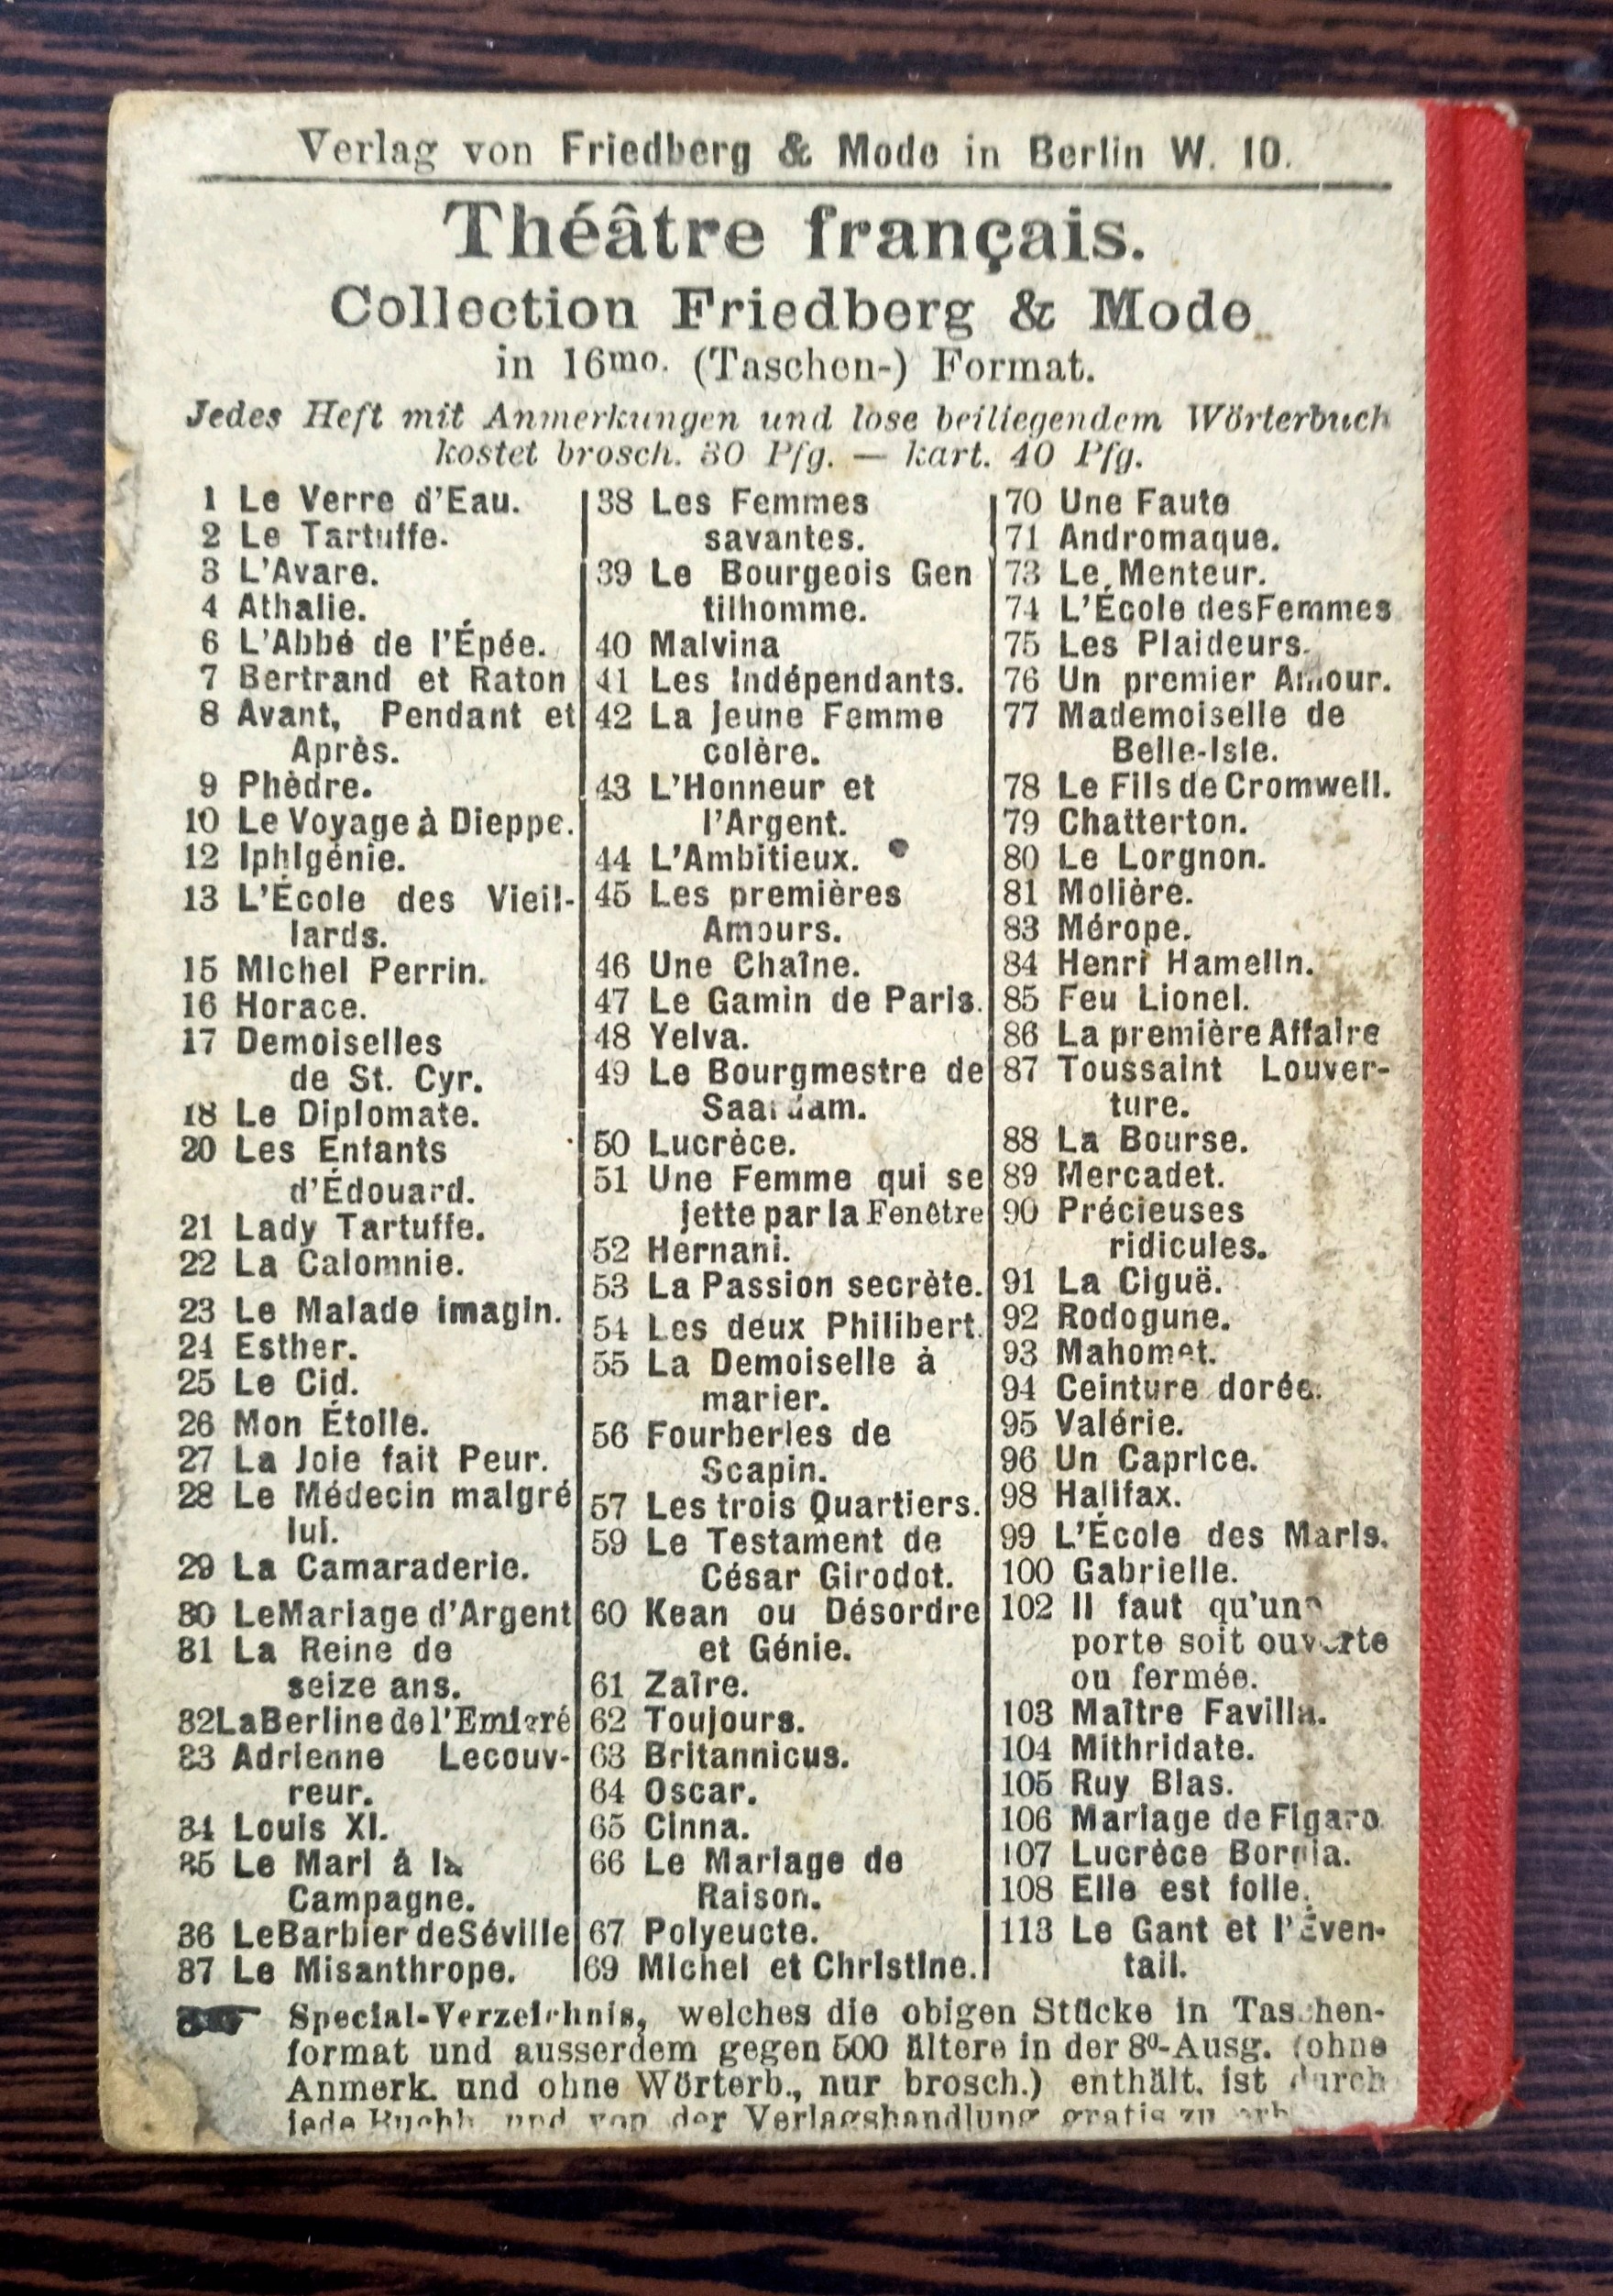 Verlag von Friedberg & Mode in Berlin W. 10.
Théâtre français.
Collection Friedberg & Mode
in 16mo. (Taschen-) Format.
Jedes Heft mit Anmerkungen und lose beiliegendem Wörterbuch
kostet brosch. 30 Pfg. — kart. 40 Pfg.
1 Le Verre d'Eau.
2 Le Tartuffe.
3 L'Avare.
4 Athalie.
6 L'Abbé de l'Épée.
7 Bertrand et Raton
8 Avant, Pendant et
Après.
9 Phèdre.
10 Le Voyage à Dieppe.
12 Iphigénie.
13 L'École des Vieil-
lards.
15 Michel Perrin.
16 Horace.
17 Demoiselles
de St. Cyr.
18 Le Diplomate.
20 Les Enfants
d'Édouard.
21 Lady Tartuffe.
22 La Calomnie.
23 Le Malade imagin.
24 Esther.
25 Le Cid.
26 Mon Étoile.
27 La Joie fait Peur.
28 Le Médecin malgré
lui.
29 La Camaraderie.
30 Le Mariage d'Argent
31 La Reine de
seize ans.
32 La Berline de l'Emigré
33 Adrienne Lecouv-
reur.
34 Louis XI.
35 Le Mari à la
Campagne.
36 Le Barbier de Séville
37 Le Misanthrope.
38 Les Femmes
savantes.
39 Le Bourgeois Gen
tilhomme.
40 Malvina
41 Les Indépendants.
42 La jeune Femme
colère.
43 L'Honneur et
l'Argent.
44 L'Ambitieux.
45 Les premières
Amours.
46 Une Chaîne.
47 Le Gamin de Paris.
48 Yelva.
49 Le Bourgmestre de
Saardam.
50 Lucrèce.
51 Une Femme qui se
jette par la Fenêtre
52 Hernani.
53 La Passion secrète.
54 Les deux Philibert.
55 La Demoiselle à
marier.
56 Fourberies de
Scapin.
57 Les trois Quartiers.
59 Le Testament de
César Girodot.
60 Kean ou Désordre
et Génie.
61 Zaïre.
62 Toujours.
63 Britannicus.
64 Oscar.
65 Cinna.
66 Le Mariage de
Raison.
67 Polyeucte.
69 Michel et Christine.
70 Une Faute
71 Andromaque.
73 Le Menteur.
74 L'École des Femmes
75 Les Plaideurs.
76 Un premier Amour.
77 Mademoiselle de
Belle-Isle.
78 Le Fils de Cromwell.
79 Chatterton.
80 Le Lorgnon.
81 Molière.
83 Mérope.
84 Henri Hamelin.
85 Feu Lionel.
86 La première Affaire
87 Toussaint Louver-
ture.
88 La Bourse.
89 Mercadet.
90 Précieuses
ridicules.
91 La Ciguë.
92 Rodogune.
93 Mahomet.
94 Ceinture dorée.
95 Valérie.
96 Un Caprice.
98 Halifax.
99 L'École des Maris.
100 Gabrielle.
102 Il faut qu'une
porte soit ouverte
ou fermée.
103 Maître Favilla.
104 Mithridate.
105 Ruy Blas.
106 Mariage de Figaro
107 Lucrèce Borgia.
108 Elle est folle.
113 Le Gant et l'Éven-
tail.
Special-Verzeichnis, welches die obigen Stücke in Taschen-
format und ausserdem gegen 500 ältere in der 8º-Ausg. (ohne
Anmerk. und ohne Wörterb., nur brosch.) enthält, ist durch
jede Buchh. und von der Verlagshandlung gratis zu